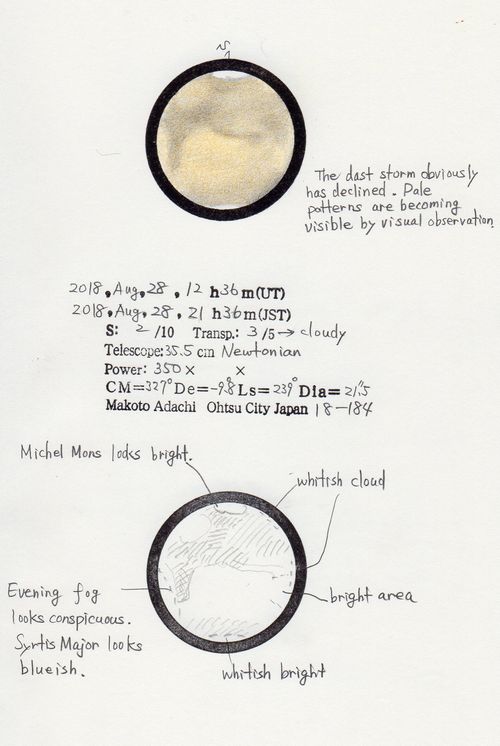 S
The dast storm obviously
has declined. Pale
patterns are becoming
visible by visual observation.
2018, Aug, 28, 12 h 36 m (UT)
2018, Aug, 28, 21 h 36 m (JST)
S: 2 /10 Transp.: 3 /5 → cloudy
Telescope: 35.5 cm Newtonian
Power: 350 × ×
CM=327° De=-9.8° Ls=239° Dia=21".5
Makoto Adachi Ohtsu City Japan 18-184
Michel Mons looks bright.
whitish cloud
Evening fog
looks conspicuous.
Syrtis Major looks
blueish.
bright area
whitish bright